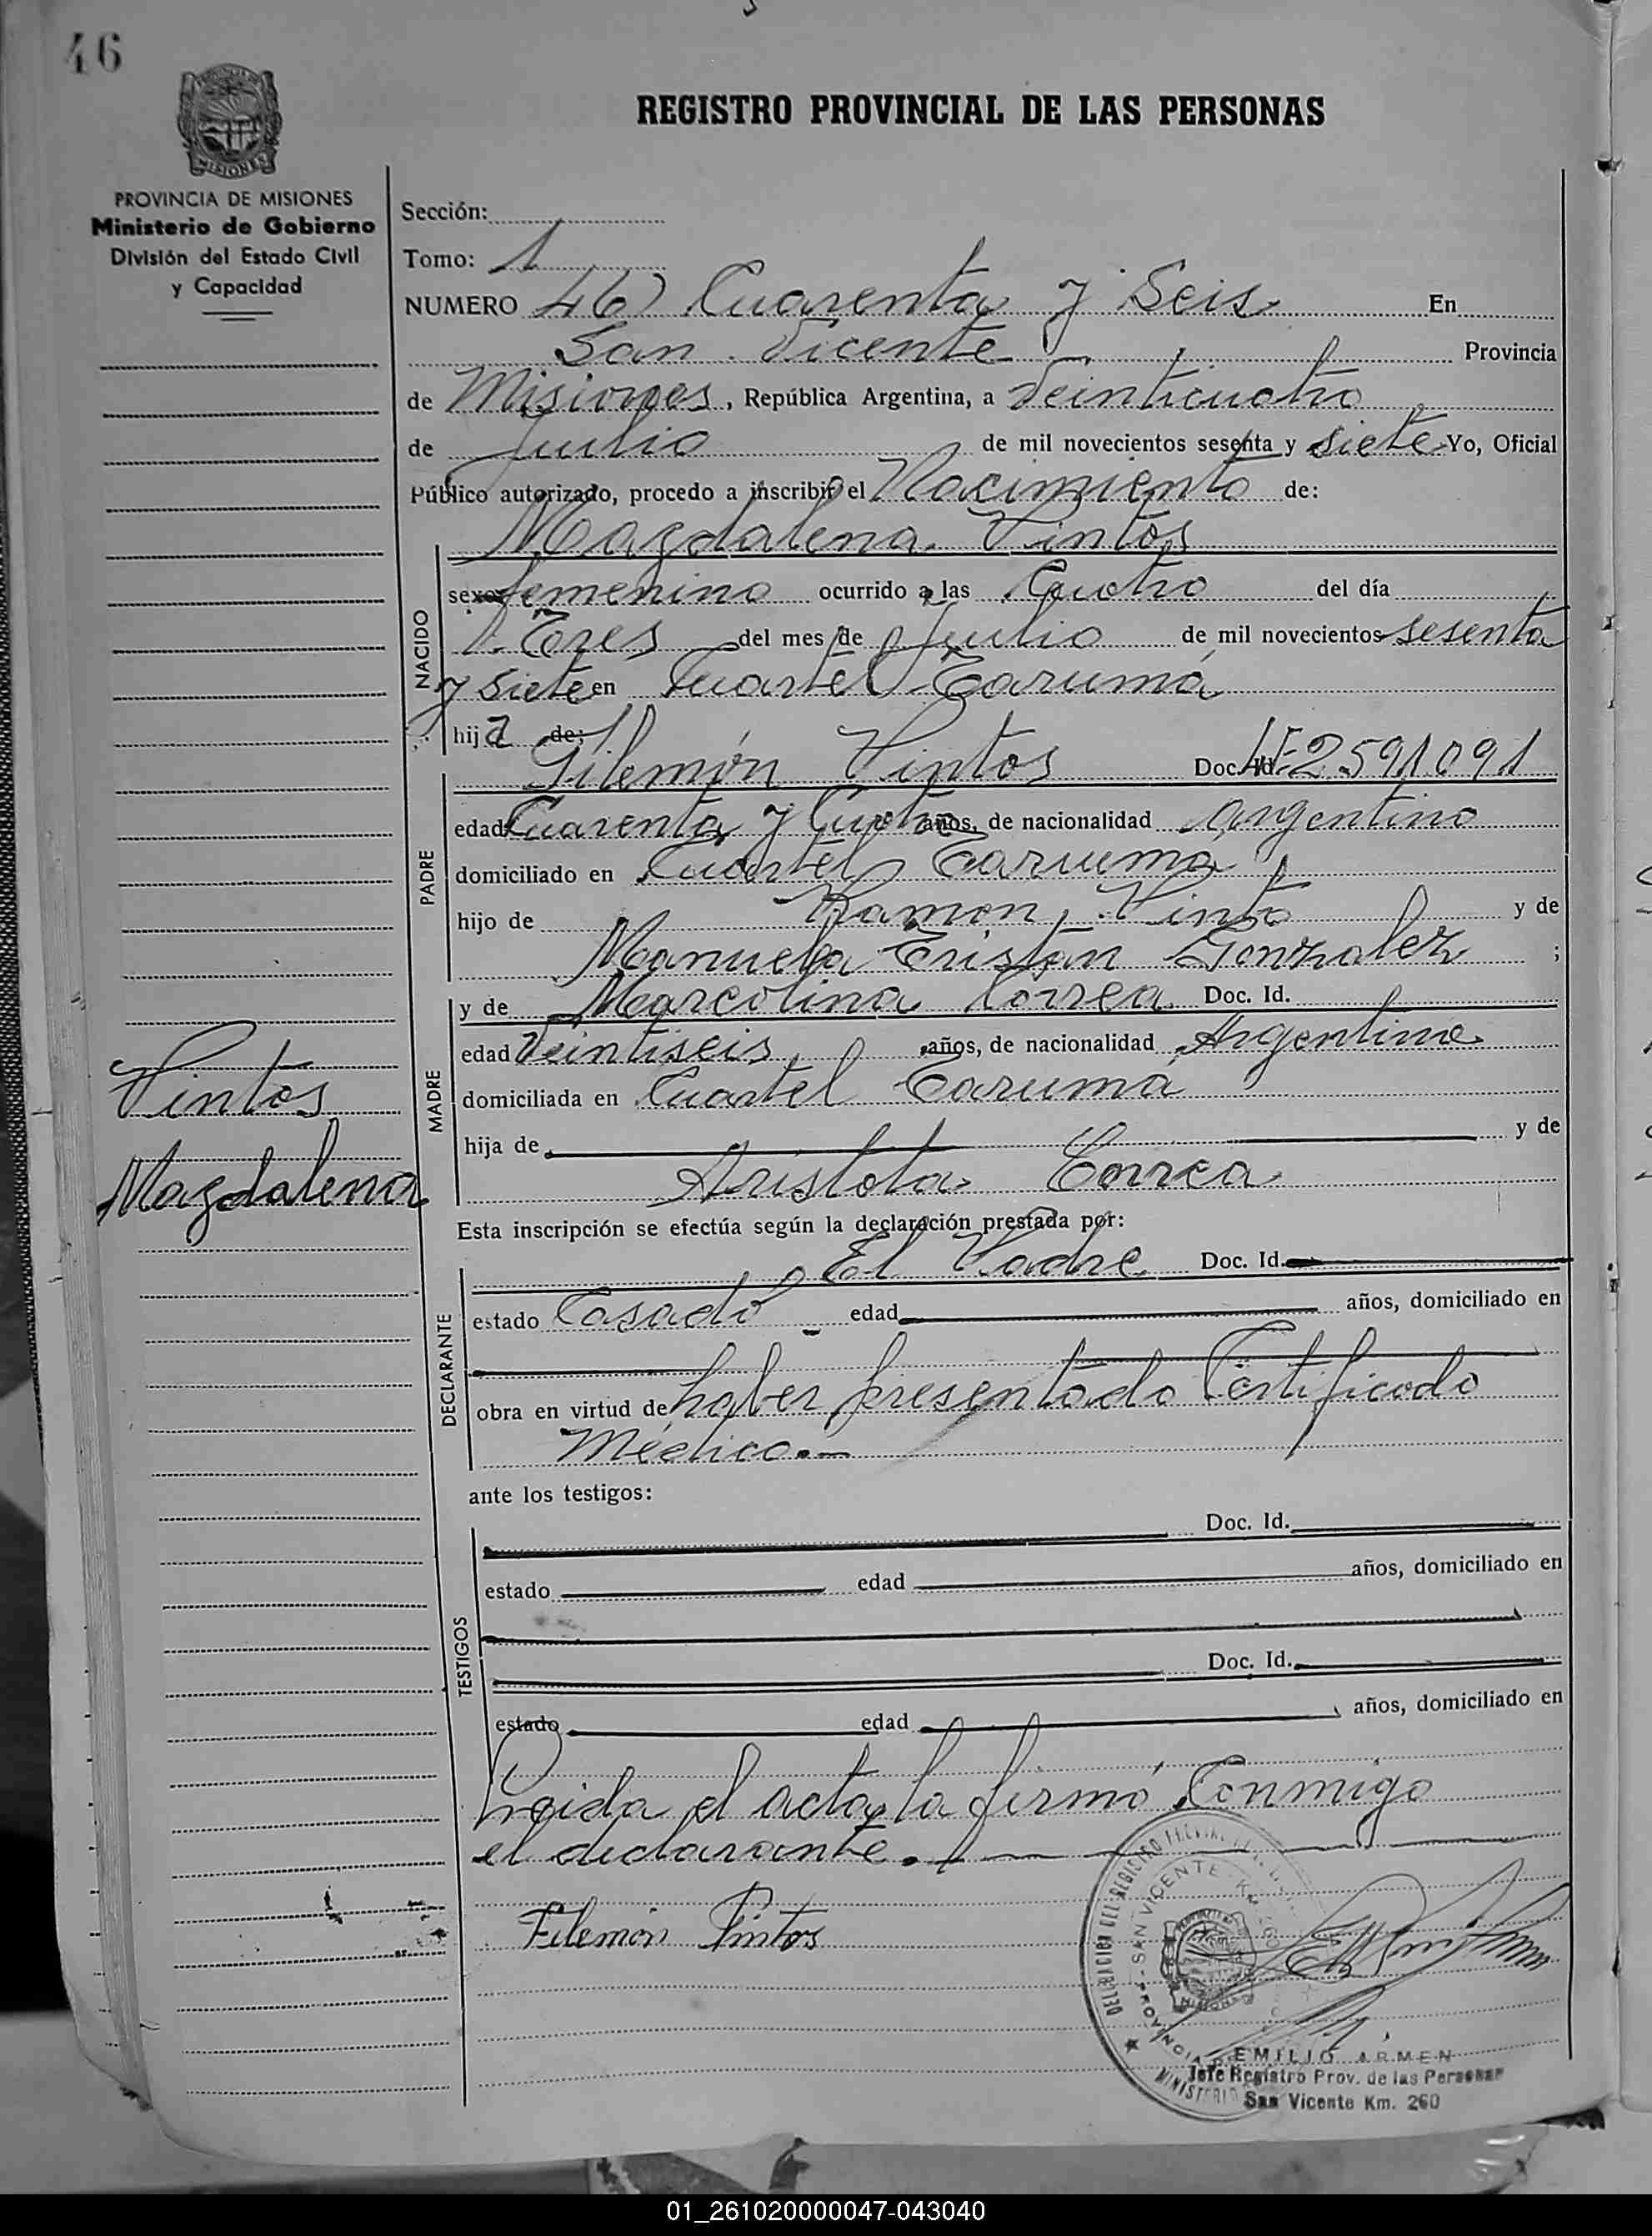 46
REGISTRO PROVINCIAL DE LAS PERSONAS
MISIONES
PROVINCIA DE MISIONES
Ministerio de Gobierno
División del Estado Civil
y Capacidad
Sección:
Tomo: 1
NUMERO 46) Cuarenta y Seis En
San Vicente Provincia
de Misiones, República Argentina, a Veinticuatro
de Julio de mil novecientos sesenta y siete Yo, Oficial
Público autorizado, procedo a inscribir el Nacimiento de:
Magdalena Pintos
NACIDO
sexo femenino ocurrido a las Cuatro del día
Tres del mes de Julio de mil novecientos sesenta
y siete en Cuartel Tarumá
hija de:
PADRE
Filemón Pintos Doc. Id. 2591091
edad Cuarenta y Cuatro años, de nacionalidad Argentino
domiciliado en Cuartel Tarumá
hijo de Ramon Pinto y de
Manuela Tristán Gonzalez ;
MADRE
y de Marcolina Correa Doc. Id.
edad Veintiseis años, de nacionalidad Argentina
domiciliada en Cuartel Tarumá
hija de y de
Aristota Correa
Pintos
Magdalena
Esta inscripción se efectúa según la declaración prestada por:
DECLARANTE
El Padre Doc. Id.
estado Casado edad años, domiciliado en
obra en virtud de haber presentado Certificado
Médico.-
ante los testigos:
TESTIGOS
Doc. Id.
estado edad años, domiciliado en
Doc. Id.
estado edad años, domiciliado en
Leida el acta, la firmó Conmigo
el declarante.
Filemón Pintos
SAN VICENTE
EMILIO ARMEN
Jefe Registro Prov. de las Personas
San Vicente Km. 260
01_261020000047-043040